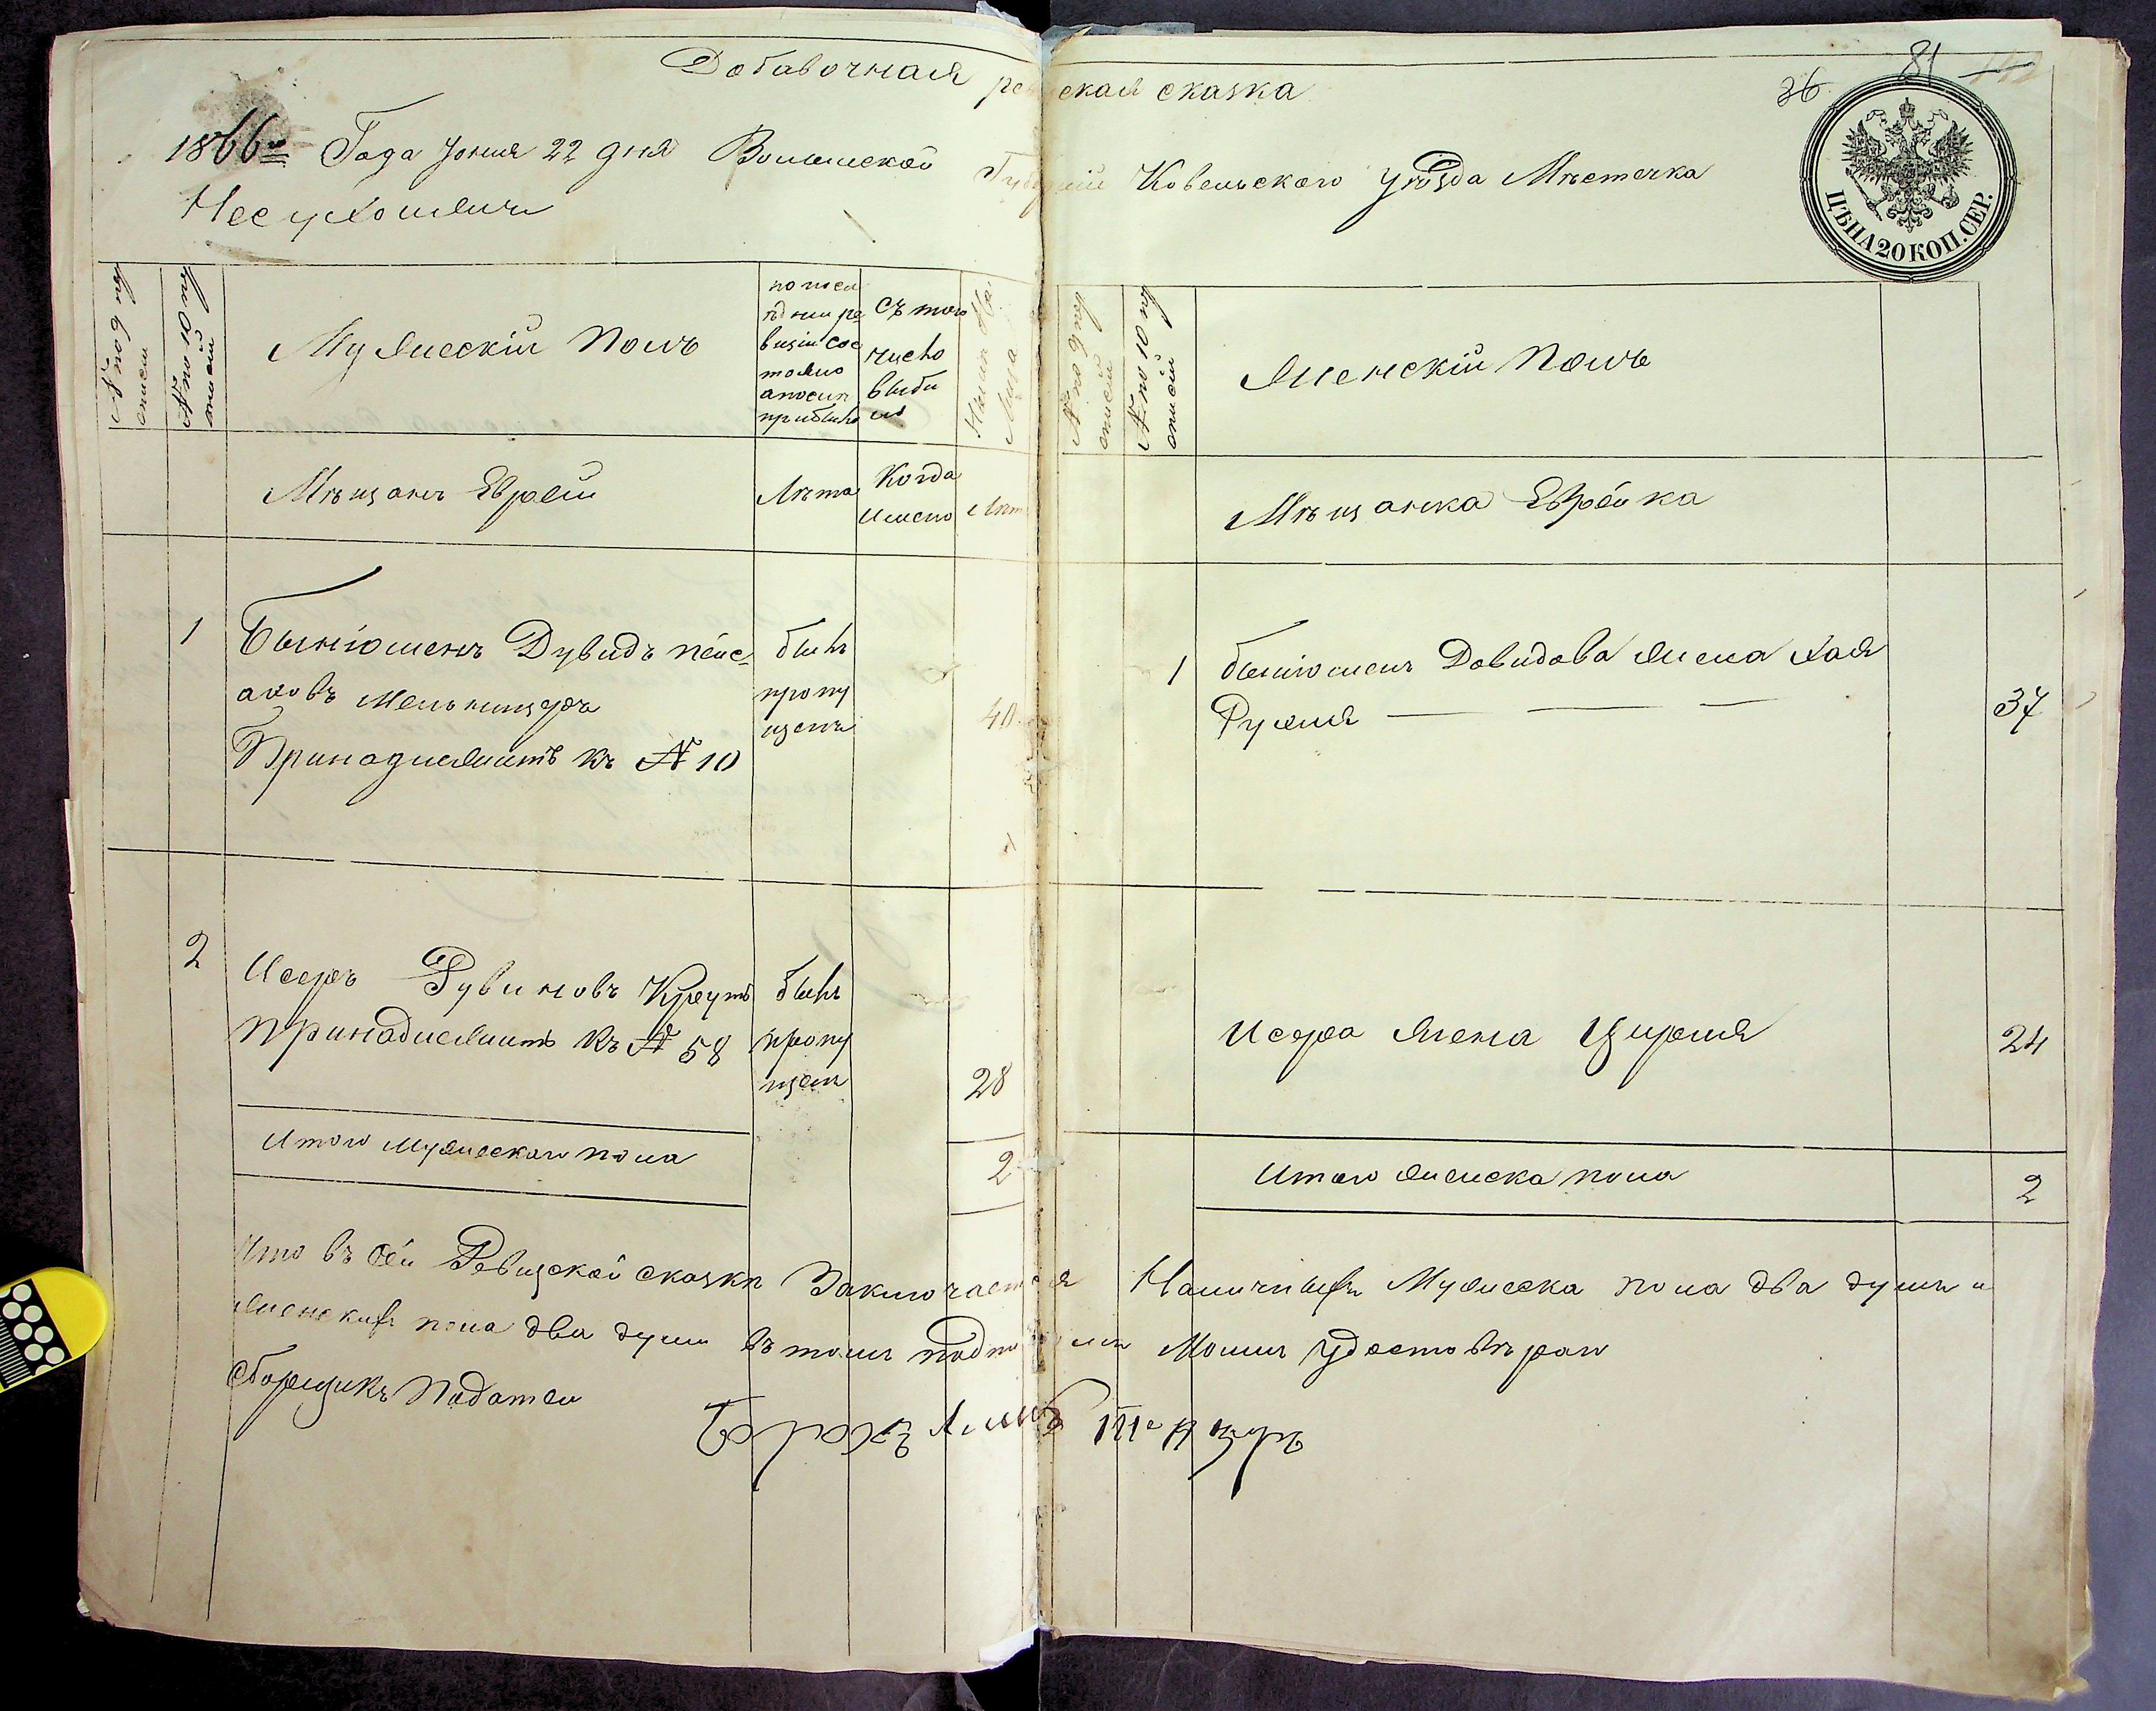 Добавочная ревизская сказка
36. 81
1866го Года Іюня 22 дня Волынской Губерніи Ковельского уѣзда Мѣстечка
Несухоижи
ЦѢНА 20 КОП. СЕР.
№ по 9 ре
описи
№ по 10 ре
описи
Мужескій Полъ
по посл
ѣдней ре
визіи сос
тояло
а после
прибыло
Съ того
число
выбы
ло
Нынѣ На
Лицо
№ по 9 рев
описи
№ по 10 ре
описи
Женскій Полъ
Мѣщанъ Еврей
Лѣта
Когда
Имено
Лѣт
Мѣщанка Еврейка
1 Быніоменъ Дувидъ пейс-
аковъ Мельницеръ
Принадлежитъ къ № 10
былъ
пропу
щенъ
40
1 быніоменъ Довидова жена Хая
Рухля
37
2 Исеръ Рувиновъ Креутъ
принадлежитъ къ № 58
былъ
пропу
щенъ
28
Исера жена Цирля 24
Итого Мужескаго пола 2
Итого женска пола 2
Что въ сей Ревизской сказкѣ Заключается Наличныхъ Мужеска пола два души и
женскихъ пола два души въ томъ подписомъ Моимъ удостовѣраю
Сборщикъ Податей
Борохъ